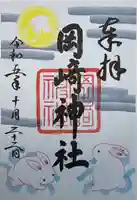 奉拝
岡崎神社
令和五年十月二十二日